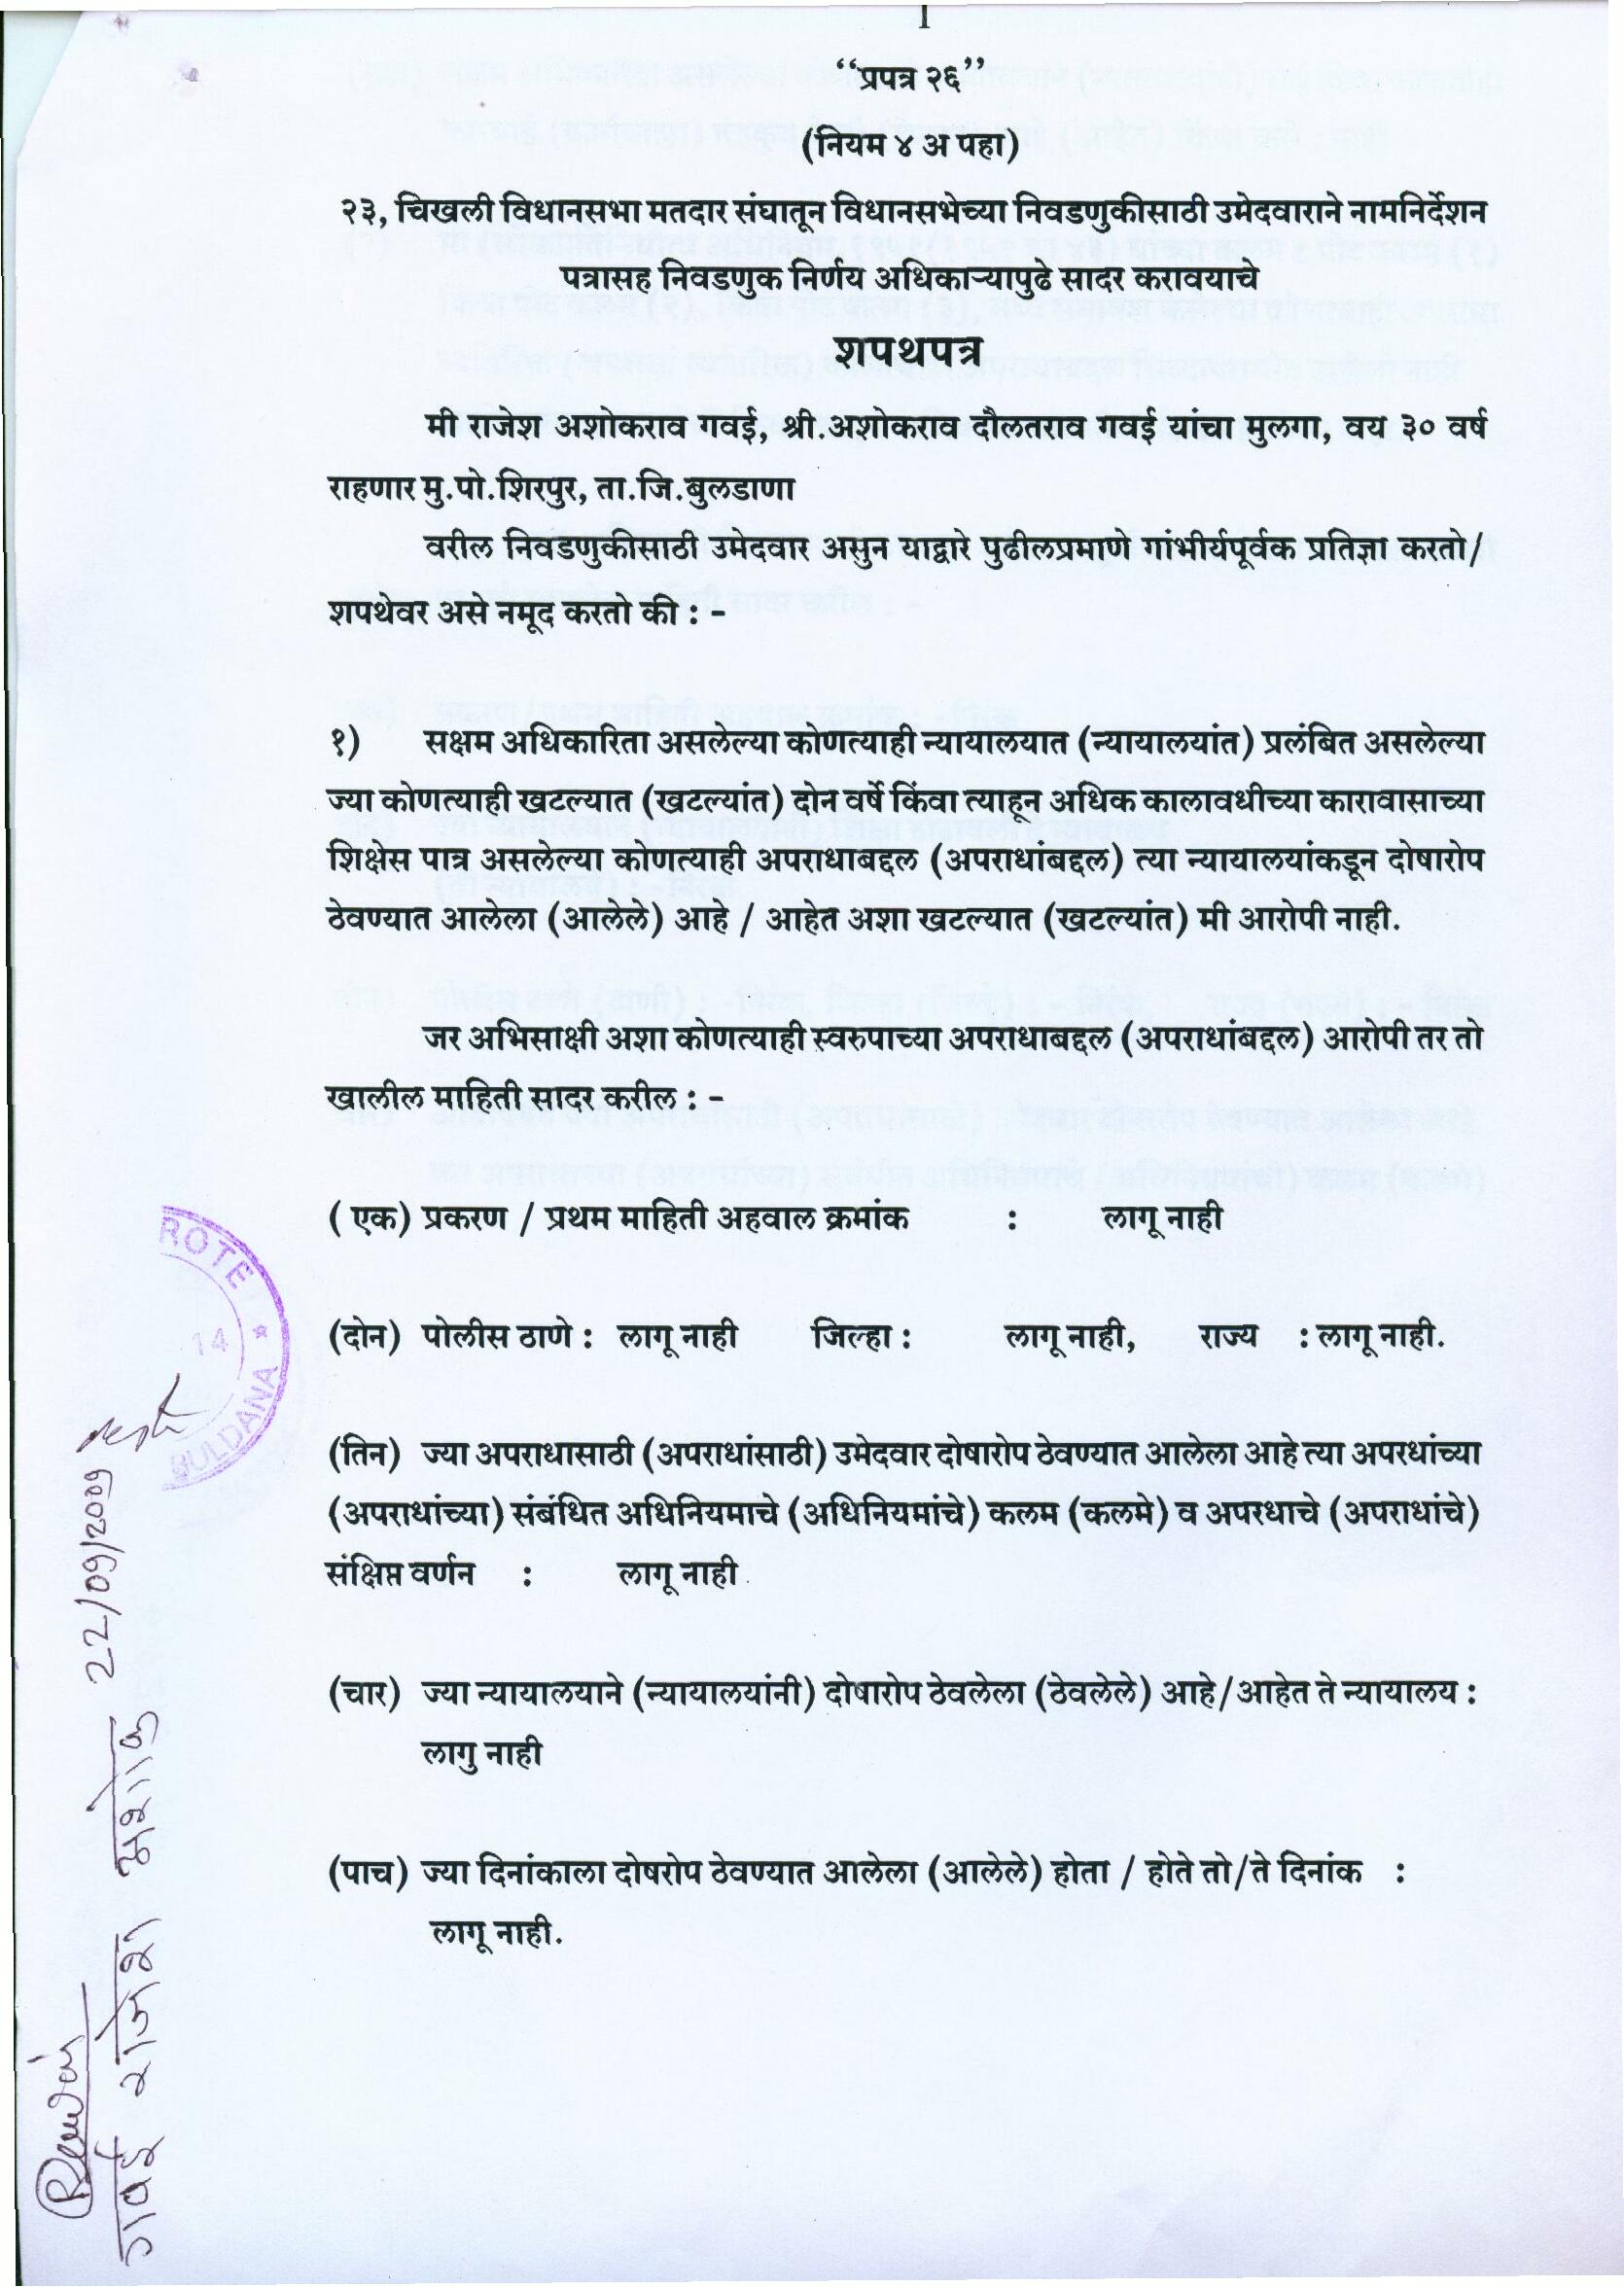 1
“प्रपत्र २६”
(नियम ४ अ पहा)
२३, चिखली विधानसभा मतदार संघातून विधानसभेच्या निवडणुकीसाठी उमेदवाराने नामनिर्देशन
पत्रासह निवडणुक निर्णय अधिकाऱ्यापुढे सादर करावयाचे
शपथपत्र
मी राजेश अशोकराव गवई, श्री.अशोकराव दौलतराव गवई यांचा मुलगा, वय ३० वर्ष
राहणार मु.पो.शिरपुर, ता.जि.बुलडाणा
वरील निवडणुकीसाठी उमेदवार असुन याद्वारे पुढीलप्रमाणे गांभीर्यपूर्वक प्रतिज्ञा करतो/
शपथेवर असे नमूद करतो की : -
१) सक्षम अधिकारिता असलेल्या कोणत्याही न्यायालयात (न्यायालयांत) प्रलंबित असलेल्या
ज्या कोणत्याही खटल्यात (खटल्यांत) दोन वर्षे किंवा त्याहून अधिक कालावधीच्या कारावासाच्या
शिक्षेस पात्र असलेल्या कोणत्याही अपराधाबद्दल (अपराधांबद्दल) त्या न्यायालयांकडून दोषारोप
ठेवण्यात आलेला (आलेले) आहे / आहेत अशा खटल्यात (खटल्यांत) मी आरोपी नाही.
जर अभिसाक्षी अशा कोणत्याही स्वरुपाच्या अपराधाबद्दल (अपराधांबद्दल) आरोपी तर तो
खालील माहिती सादर करील : -
( एक) प्रकरण / प्रथम माहिती अहवाल क्रमांक : लागू नाही
(दोन) पोलीस ठाणे : लागू नाही जिल्हा : लागू नाही, राज्य : लागू नाही.
(तिन) ज्या अपराधासाठी (अपराधांसाठी) उमेदवार दोषारोप ठेवण्यात आलेला आहे त्या अपरधांच्या
(अपराधांच्या) संबंधित अधिनियमाचे (अधिनियमांचे) कलम (कलमे) व अपरधाचे (अपराधांचे)
संक्षिप्त वर्णन : लागू नाही
(चार) ज्या न्यायालयाने (न्यायालयांनी) दोषारोप ठेवलेला (ठेवलेले) आहे/आहेत ते न्यायालय :
लागु नाही
(पाच) ज्या दिनांकाला दोषरोप ठेवण्यात आलेला (आलेले) होता / होते तो/ते दिनांक :
लागू नाही.
ROTE
14 *
BULDANA
22/09/2009
गवई राजेश अशोक